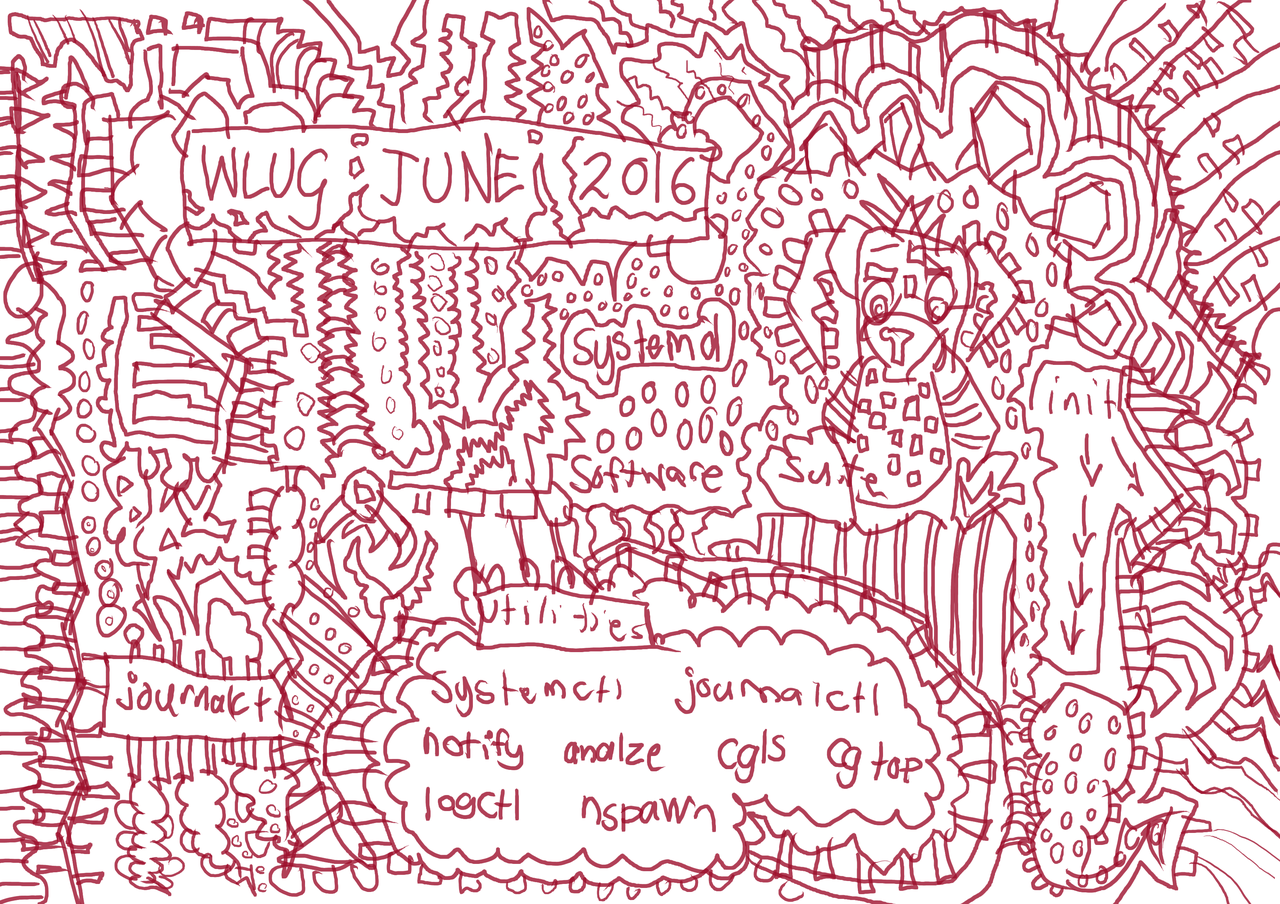 WLUG JUNE 2016
systemd
init
Software Suite
Utilities
journalct
systemctl journalctl
notify analze cgls cgtop
logctl nspawn